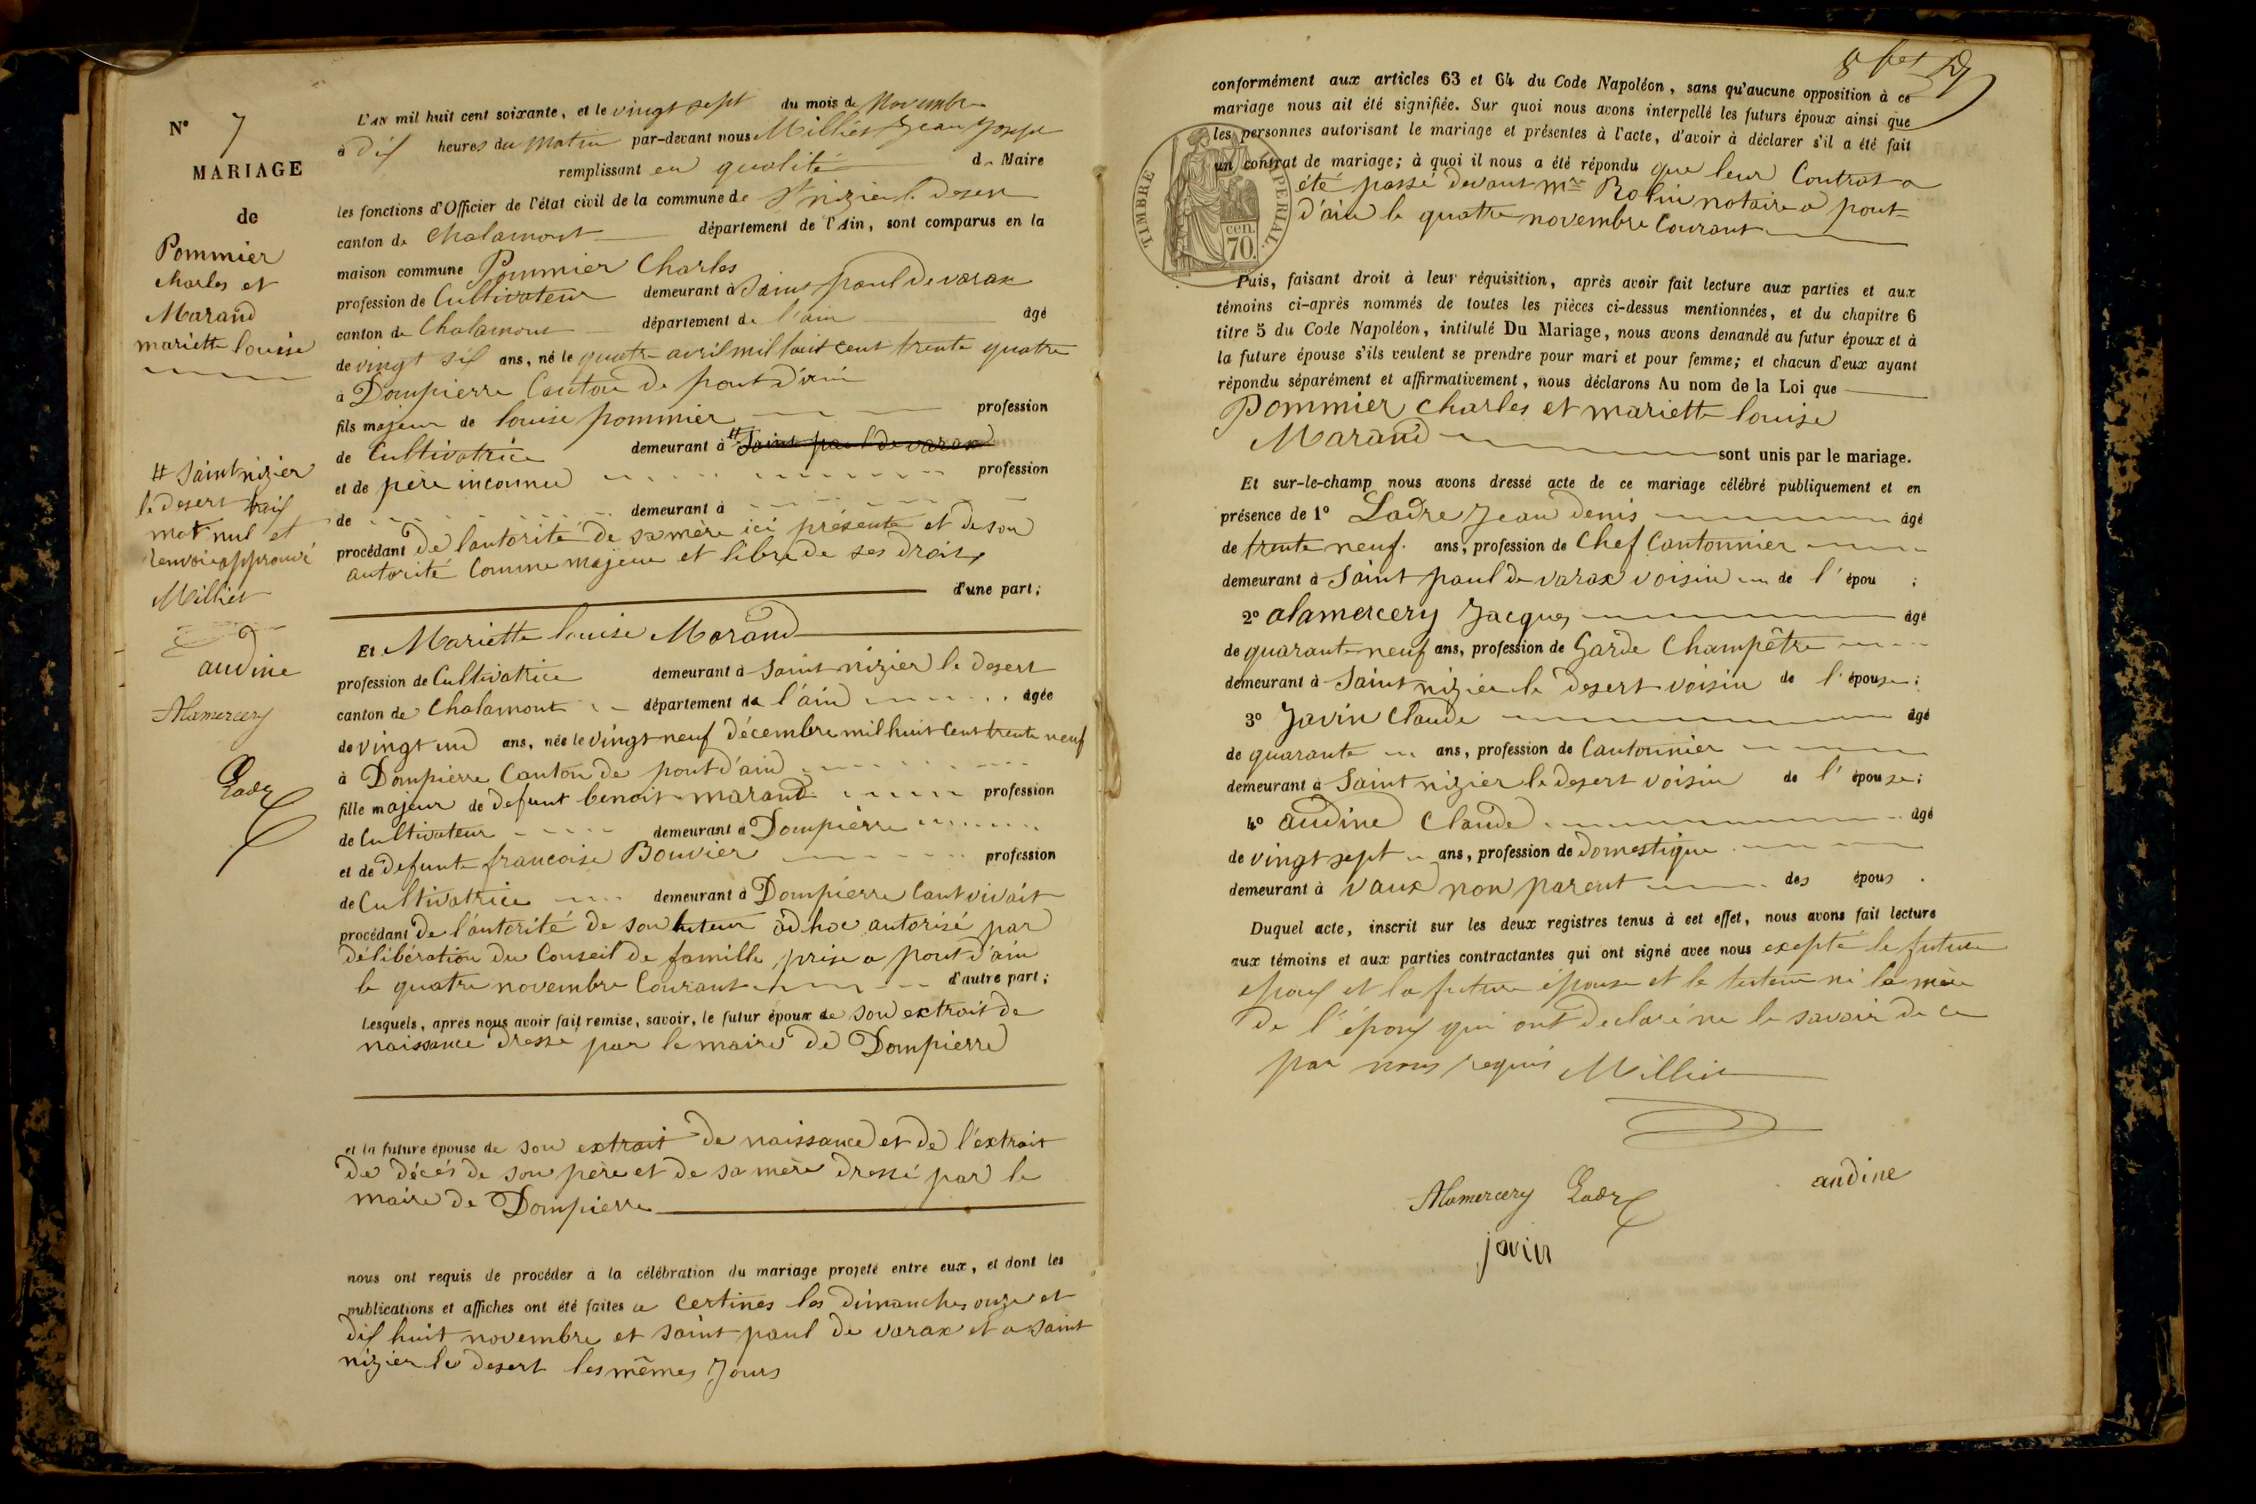 N° 7
MARIAGE
de
Pommier
charles et
Marand
mariette louise
# Saint nizier
le desert trois
mot nul et
renvoie approuvé
Millier
audine
Alamercery
Ladre
L'AN mil huit cent soixante, et le vingt sept du mois de Novembre
à dix heures du matin par-devant nous Millier Jean Joseph
remplissant en qualité de Maire
les fonctions d'Officier de l'état civil de la commune de St nizier le desert
canton de Chalamont département de l'Ain, sont comparus en la
maison commune Pommier Charles
profession de Cultivateur demeurant à Saint paul de varax
canton de Chalamont département de l'ain âgé
de vingt six ans, né le quatre avril mil huit cent trente quatre
à Dompierre Canton de pont d'ain
fils majeur de louise pommier profession
de Cultivatrice demeurant à # Saint paul de varax
et de père inconnu profession
de demeurant à
procédant de l'autorité de sa mère ici présente et de son
autorité Comme majeur et libre de ses droits
d'une part;
Et Mariette louise Marand
profession de Cultivatrice demeurant à Saint nizier le desert
canton de Chalamont département de l'ain âgée
de vingt un ans, née le vingt neuf décembre mil huit Cent trente neuf
à Dompierre Canton de pont d'ain
fille majeur de defunt benoit marand profession
de Cultivateur demeurant à Dompierre
et de defunte francoise Bouvier profession
de Cultivatrice demeurant à Dompierre l'ant vivait
procédant de l'autorité de son tuteur ad hoc autorisé par
délibération du Conseil de famille prise a pont d'ain
le quatre novembre Courant d'autre part;
Lesquels, après nous avoir fait remise, savoir, le futur époux de son extrait de
naissance dressé par le maire de Dompierre
et la future épouse de son extrait de naissance et de l'extrait
de décés de son père et de sa mère dressé par le
maire de Dompierre
nous ont requis de procéder à la célébration du mariage projeté entre eux, et dont les
publications et affiches ont été faites a Certines les dimanches onze et
dix huit novembre et Saint paul de varax et a Saint
nizier le desert les mêmes Jours
conformément aux articles 63 et 64 du Code Napoléon, sans qu'aucune opposition à ce
mariage nous ait été signifiée. Sur quoi nous avons interpellé les futurs époux ainsi que
les personnes autorisant le mariage et présentes à l'acte, d'avoir à déclarer s'il a été fait
un contrat de mariage; à quoi il nous a été répondu que leur Contrat a
été passé devant mre Robin notaire a pont
d'ain le quatre novembre Courant
TIMBRE IMPERIAL
cen.
70.
Puis, faisant droit à leur réquisition, après avoir fait lecture aux parties et aux
témoins ci-après nommés de toutes les pièces ci-dessus mentionnées, et du chapitre 6
titre 5 du Code Napoléon, intitulé Du Mariage, nous avons demandé au futur époux et à
la future épouse s'ils veulent se prendre pour mari et pour femme; et chacun d'eux ayant
répondu séparément et affirmativement, nous déclarons Au nom de la Loi que
Pommier charles et mariette louise
Marand sont unis par le mariage.
Et sur-le-champ nous avons dressé acte de ce mariage célébré publiquement et en
présence de 1° Ladre Jean denis âgé
de trente neuf ans, profession de Chef Cantonnier
demeurant à Saint paul de varax voisin de l'épou ;
2° alamercery Jacques âgé
de quarante neuf ans, profession de Garde Champêtre
demeurant à Saint nizier le desert voisin de l'épouse;
3° Javin Claude âgé
de quarante ans, profession de Cantonnier
demeurant à Saint nizier le desert voisin de l'épouse;
4° audine Claude âgé
de vingt sept ans, profession de domestique
demeurant à vaux non parent des épous.
Duquel acte, inscrit sur les deux registres tenus à cet effet, nous avons fait lecture
aux témoins et aux parties contractantes qui ont signé avec nous excepté le future
epoux et la future épouse et le tuteur ni la mère
de l'époux qui ont declaré ne le savoir de ce
par nous requis Millier
Alamercery Ladre audine
javin